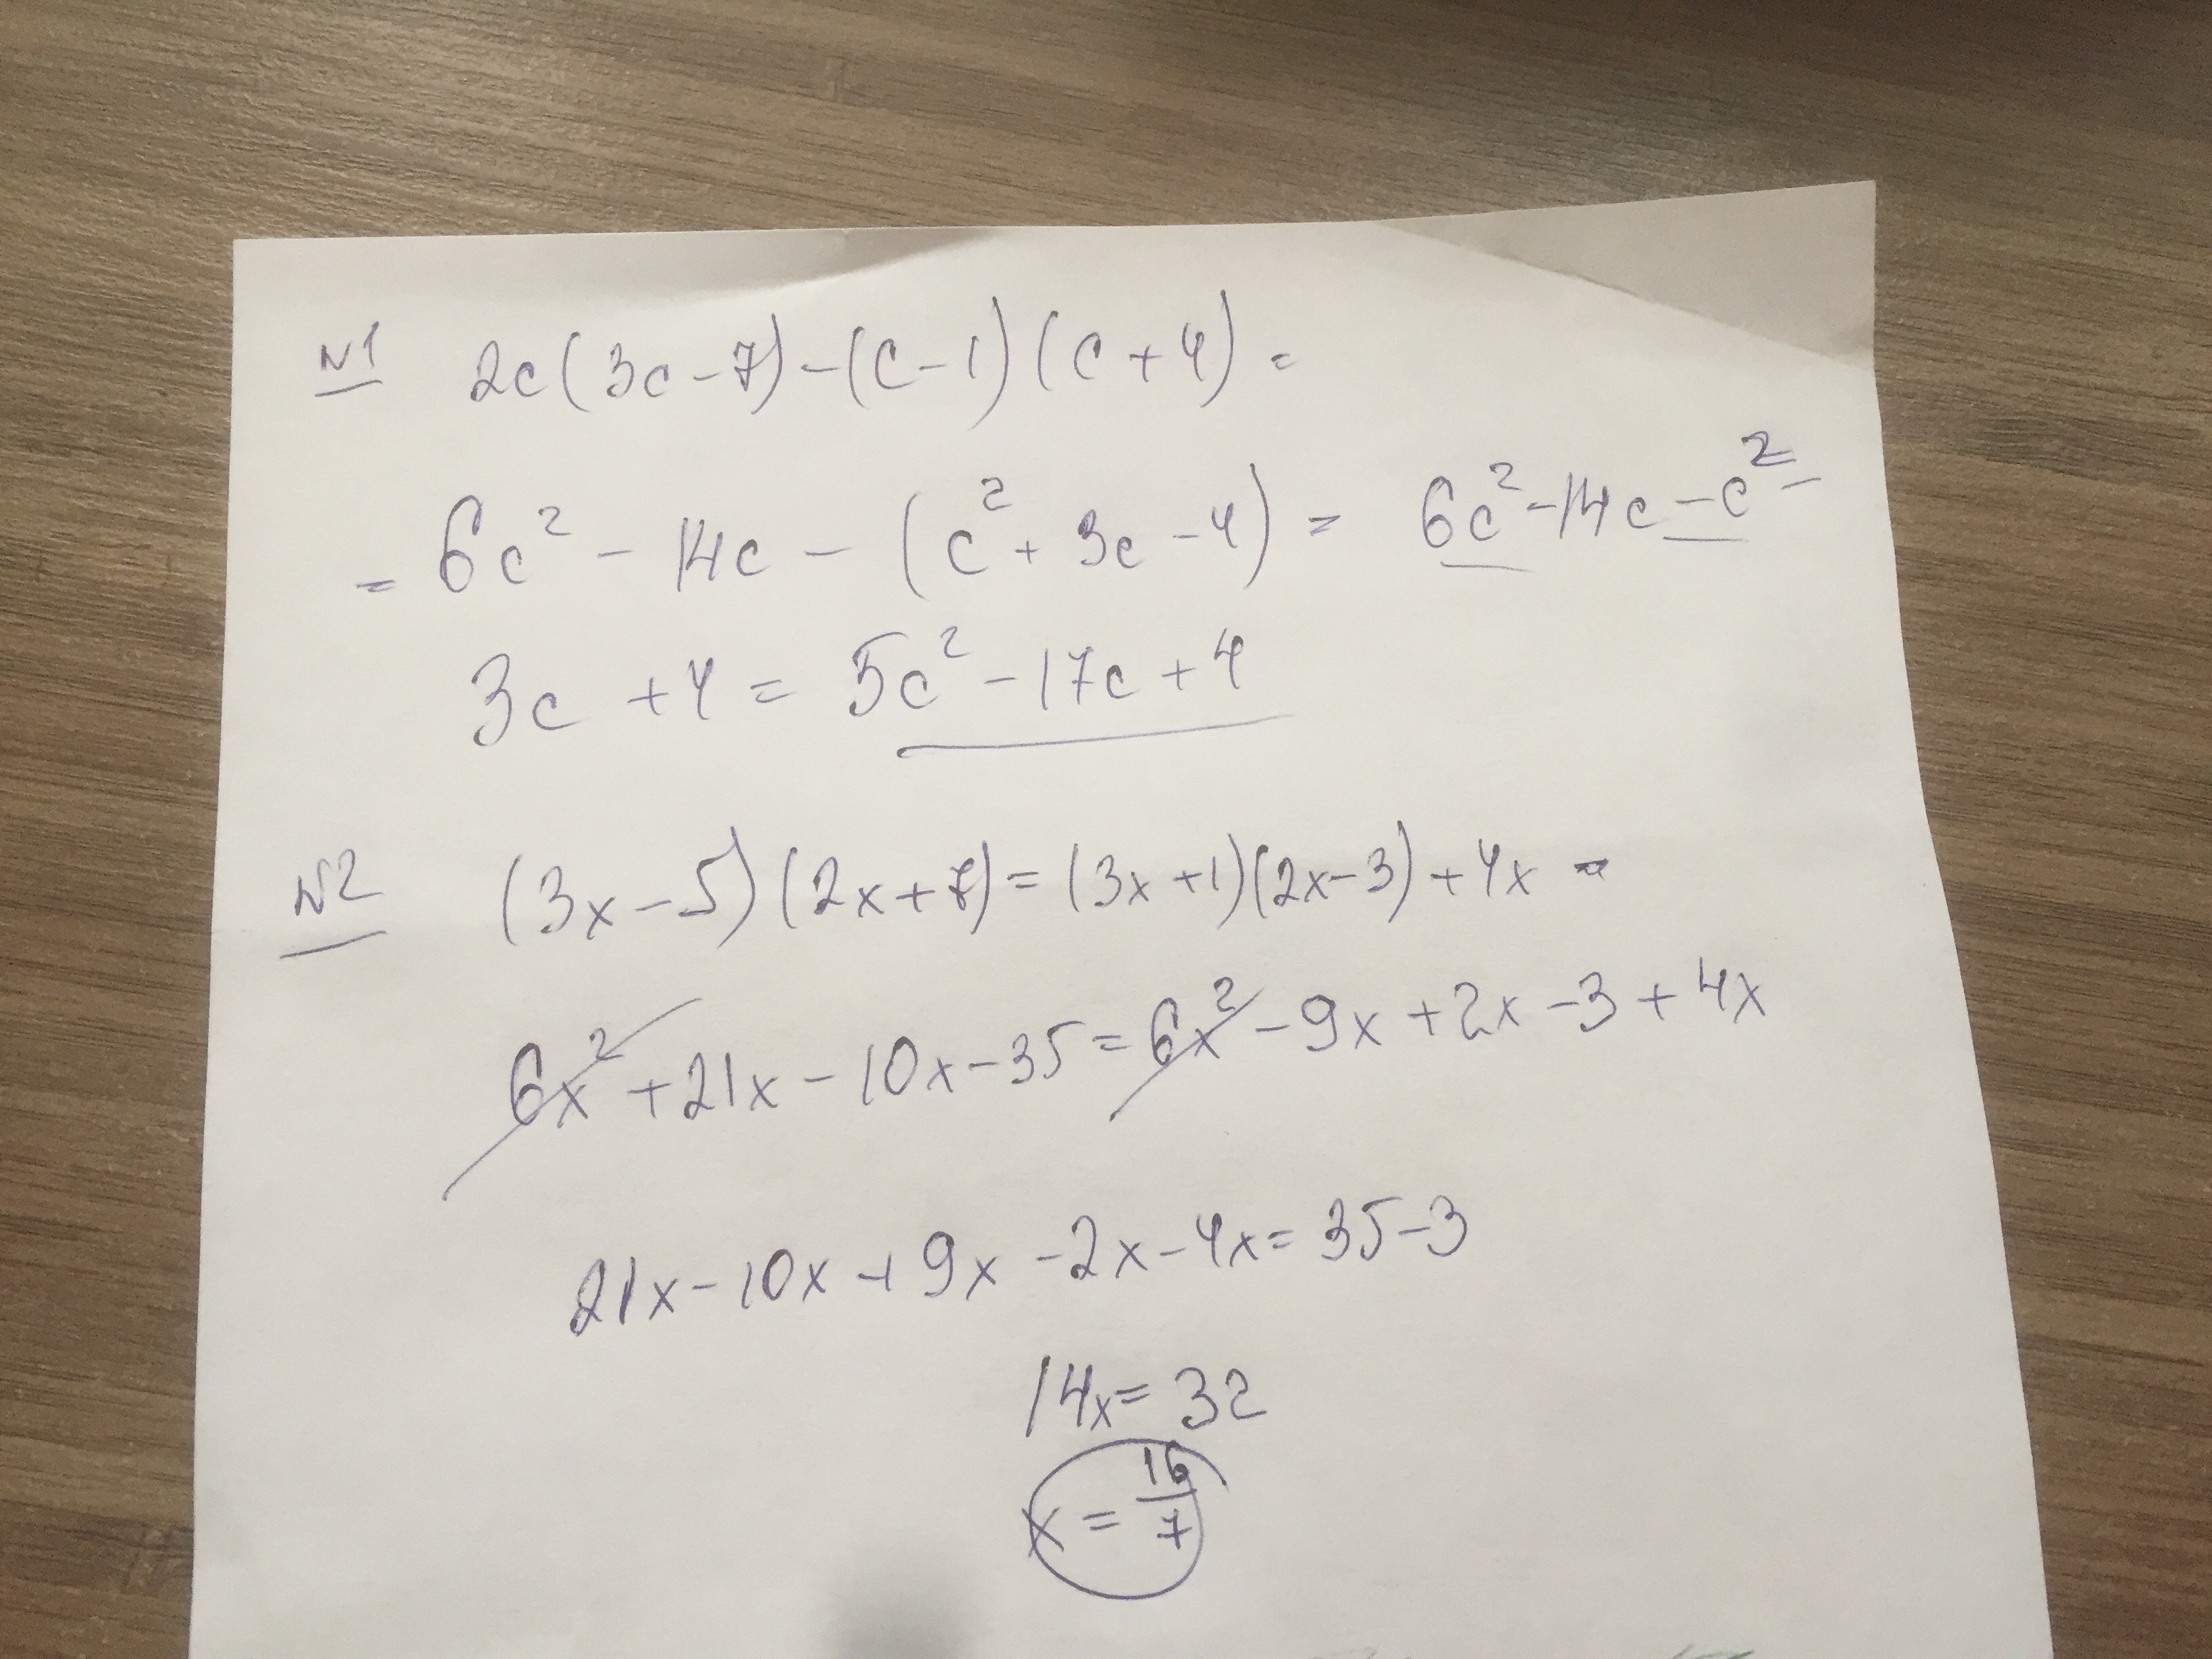 N1 2c(3c-7)-(c-1)(c+4)=
=6c²-14c-(c²+3c-4)=6c²-14c-c²-
3c+4=5c²-17c+4
N2 (3x-5)(2x+7)=(3x+1)(2x-3)+4x
6x²+21x-10x-35=6x²-9x+2x-3+4x
21x-10x+9x-2x-4x=35-3
14x=32
x=16/7